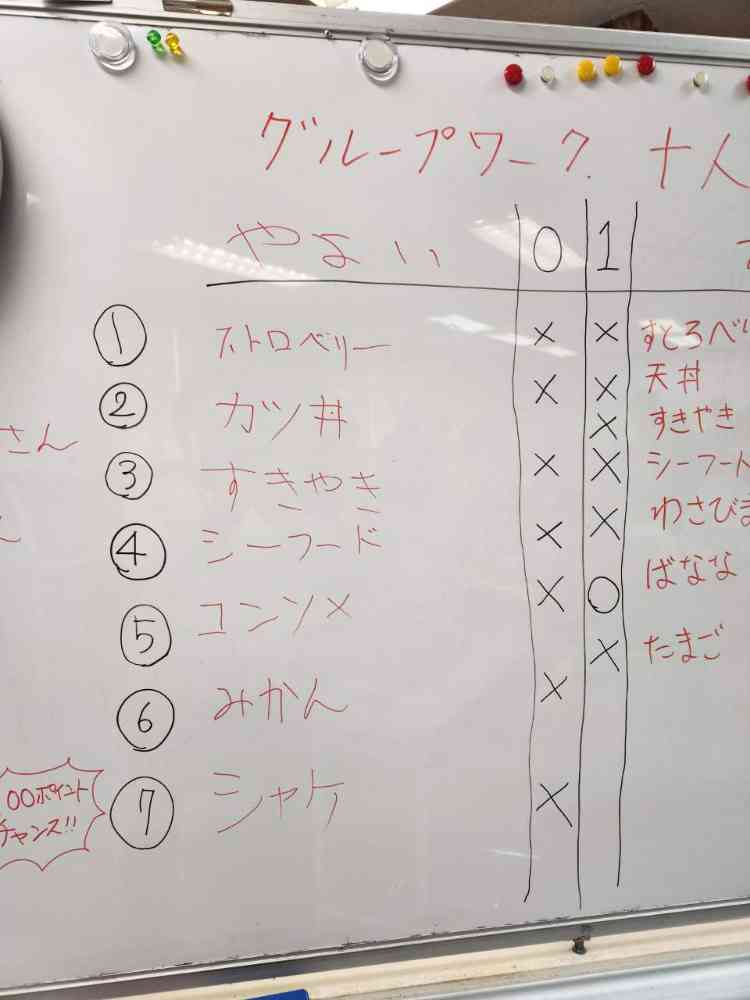 グループワーク 十人
やよい 0 1
① ストロベリー × × すとろべり
② カツ丼 × × 天丼
× すきやき
③ すきやき × × シーフード
④ シーフード × × わさびま
⑤ コンソメ × ○ ばなな
× たまご
⑥ みかん ×
⑦ シャケ ×
さん
00ポイント
チャンス!!